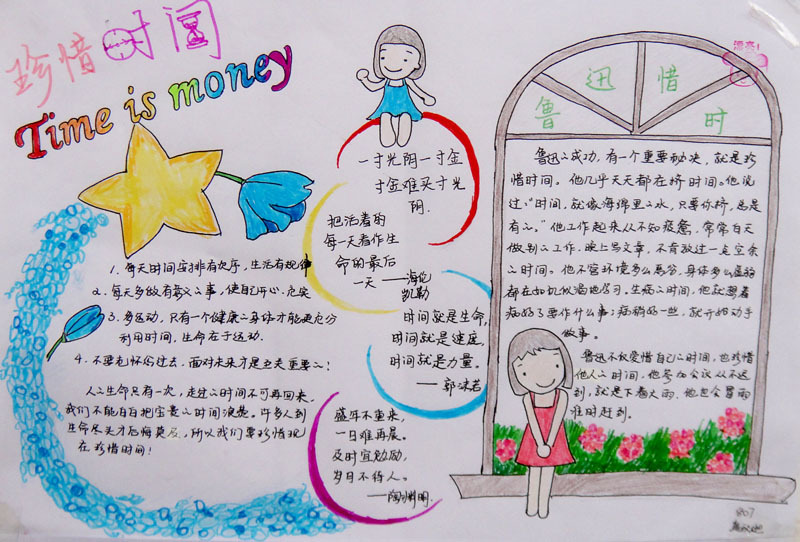 珍惜时间
Time is money
1. 每天时间安排有次序，生活有规律
2. 每天多做有意义之事，使自己开心、充实
3. 多运动，只有一个健康之身体才能更充分
利用时间，生命在于运动．
4. 不要老怀念过去，面对未来才是至关重要之！
人之生命只有一次，走过之时间不可再回来．
我们不能白白把宝贵之时间浪费．许多人到
生命尽头才后悔莫及，所以我们要珍惜现
在 珍惜时间！
一寸光阴一寸金
寸金难买寸光
阴．
把活着的
每一天看作生
命的最后
一天 ——海伦
凯勒
时间就是生命，
时间就是速度，
时间就是力量。
——郭沫若
盛年不重来，
一日难再晨。
及时宜勉励，
岁月不待人。
——陶渊明
漂亮！
鲁迅惜时
鲁迅之成功，有一个重要秘决，就是珍
惜时间。他几乎天天都在挤时间。他说
过：“时间，就像海绵里之水，只要你挤，总是
有之。”他工作起来从不知疲惫，常常白天
做别之工作，晚上写文章，不肯放过一点空余
之时间。他不管环境多么恶劣，身体多么虚弱
都在如饥似渴地学习，生病之时间，他就想着
病好了要作什么事；病稍好一些，就开始动手
做事。
鲁迅不权爱惜自己之时间，也珍惜
他人之时间，他参加会议从不迟
到，就是下着大雨，他也会冒雨
准时赶到。
807